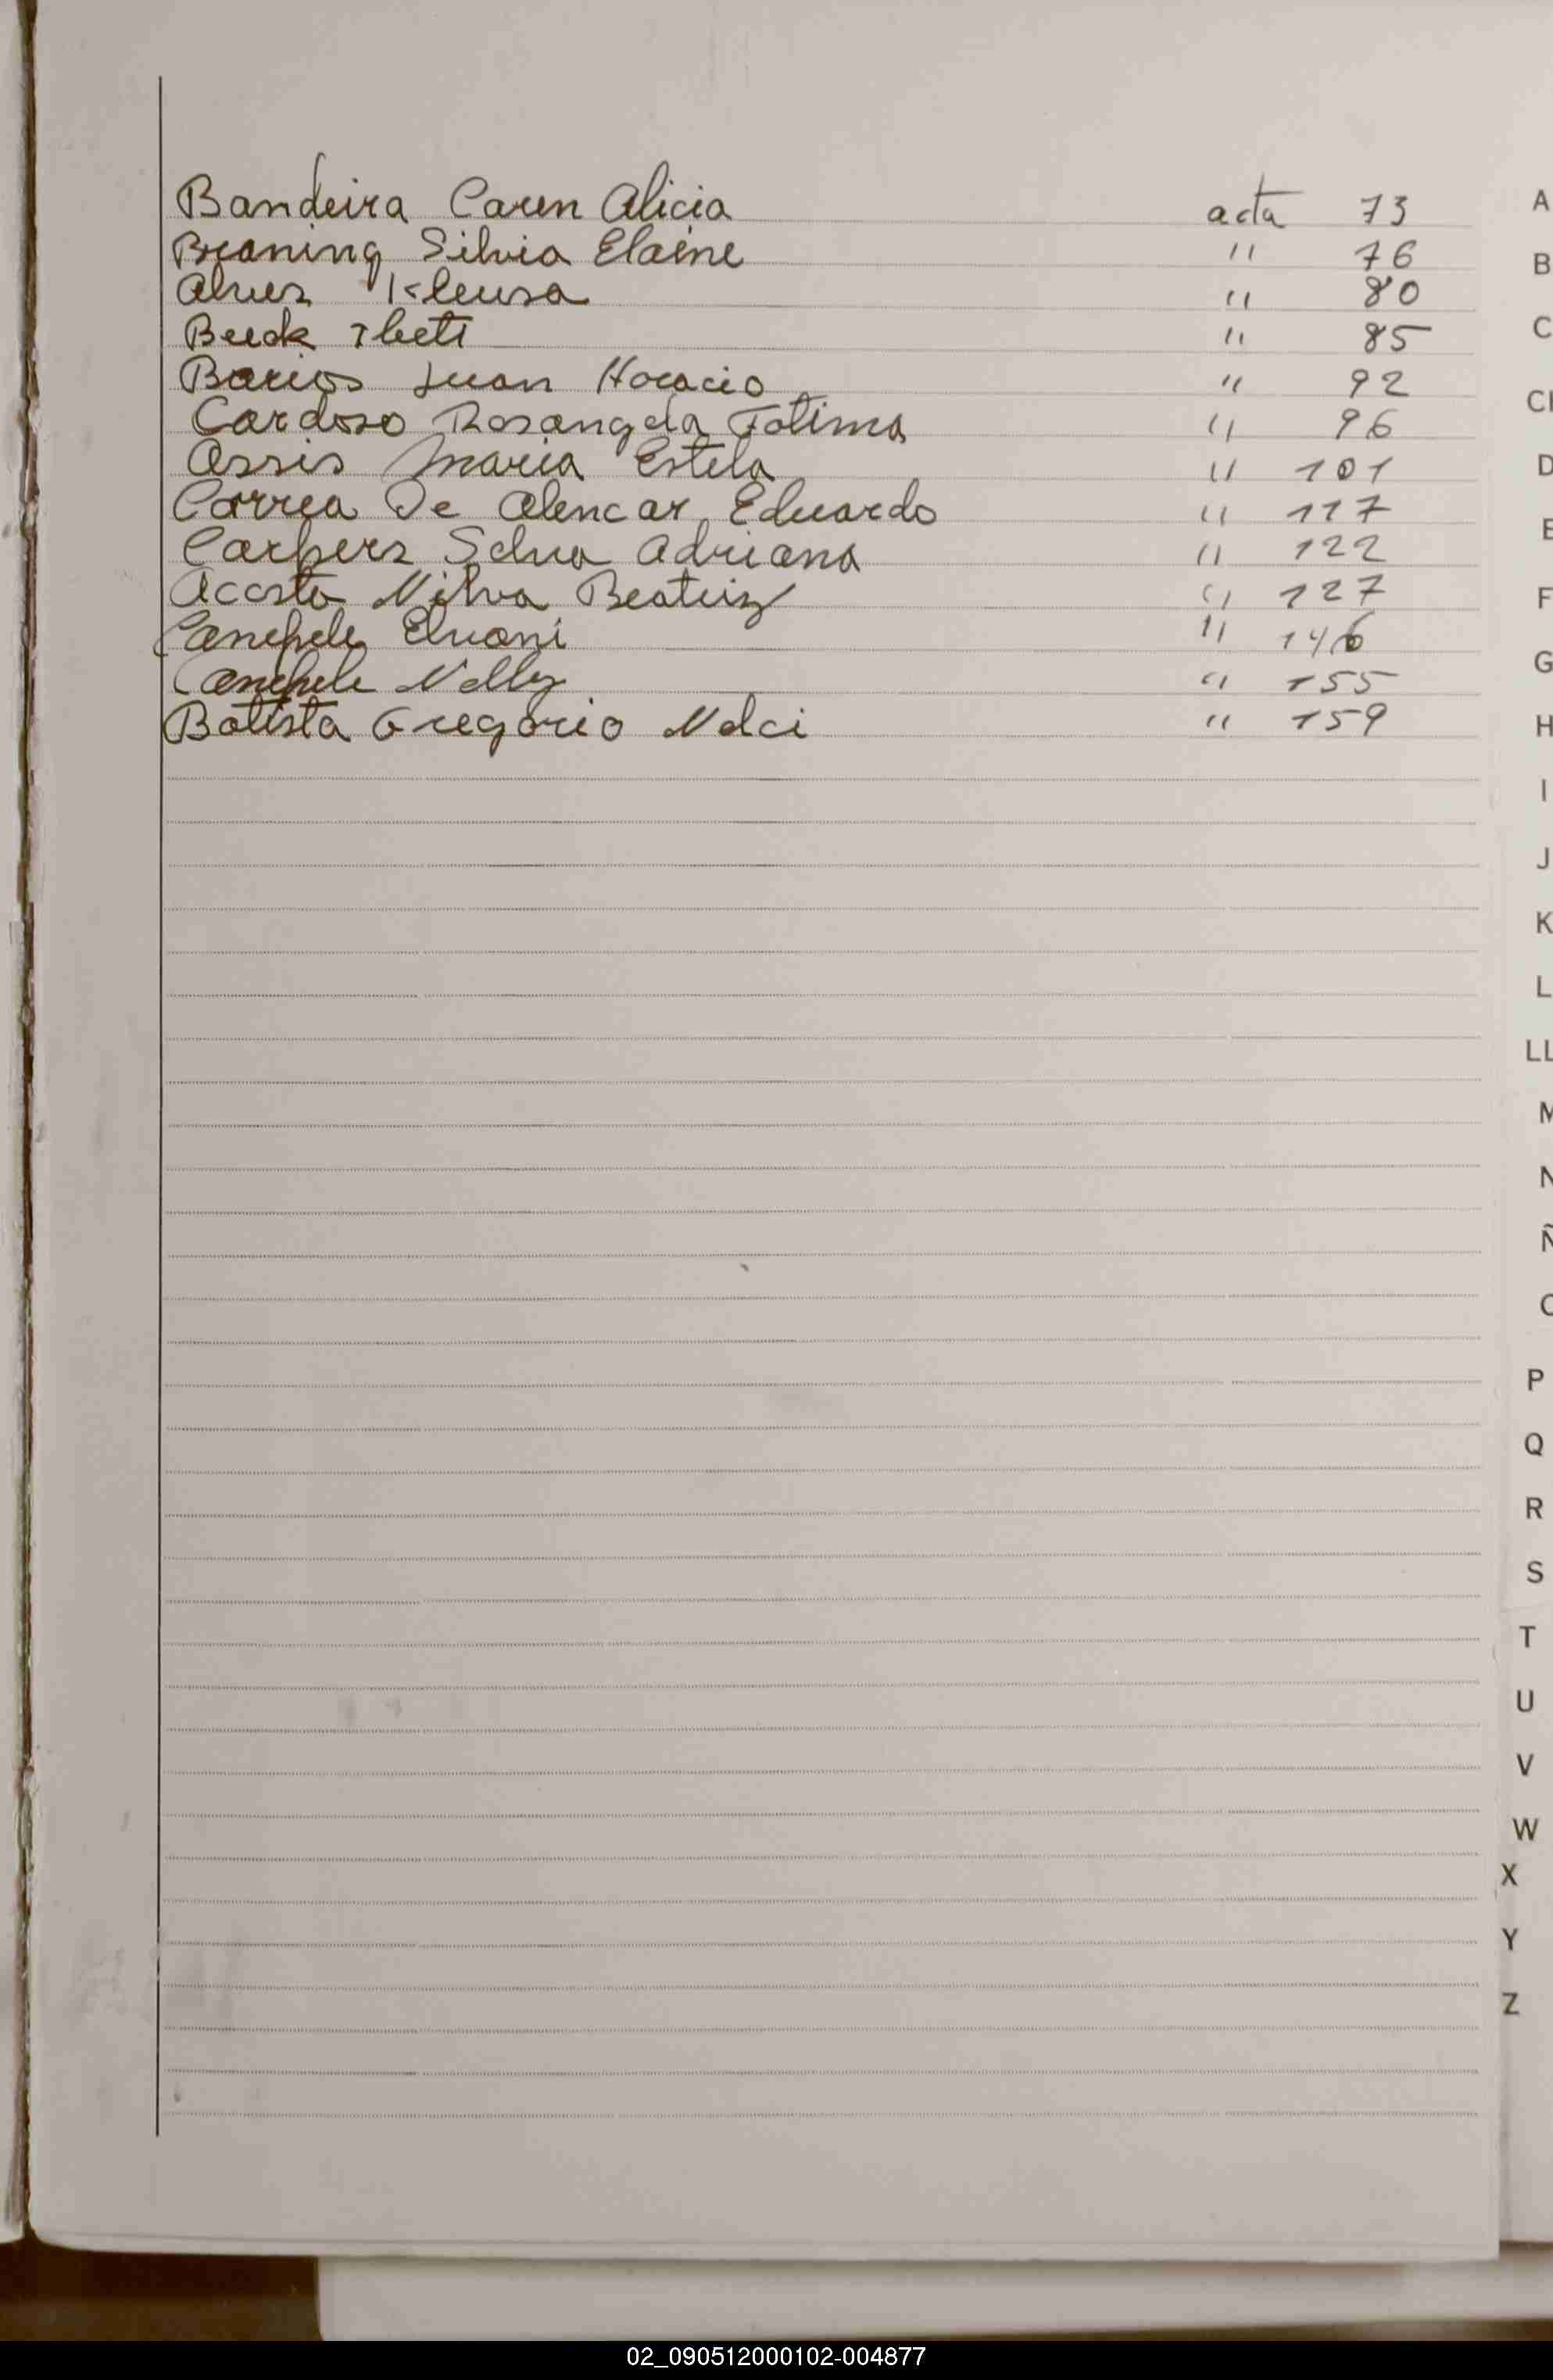 Bandeira Caren Alicia acta 73
Breaning Silvia Elaine " 76
Alves Kleusa " 80
Beick Ibeti " 85
Barios Juan Horacio " 92
Cardoso Rosangela Fatima " 96
Assis Maria Estela " 101
Correa De Alencar Eduardo " 117
Carpers Selva Adriana " 122
Acosta Nilva Beatriz " 127
Canepele Elvani " 146
Canepele Nelly " 155
Batista Gregorio Nelci " 159
A
B
C
D
E
F
G
H
I
J
K
L
LL
M
N
Ñ
O
P
Q
R
S
T
U
V
W
X
Y
Z
02_090512000102-004877